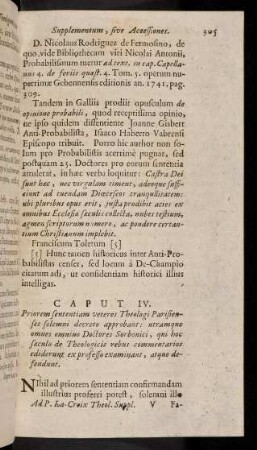 Supplementum, sive Accessiones. 305
D. Nicolaus Rodriguez de Fermosino, de
quo vide Bibliothecam viri Nicolai Antonii,
Probabilissimum tuetur ad text. in cap. Capella-
nus 4. de feriis quæst. 4. Tom. 5. operum nu-
perrimæ Gebennensis editionis an. 1741. pag.
309.
Tandem in Galliis prodiit opusculum de
opinione probabili, quod receptissima opinio,
ne ipso quidem diffitente Joanne Gisbert
Anti-Probabilista, Isaaco Haberto Vabrensi
Episcopo tribuit. Porro hic author non so-
lum pro Probabilistis acerrimè pugnat, sed
postquam 25. Doctores pro eorum sententia
amulerat, in hæc verba loquitur: Castra Dei
sunt hæc, nec virgulam timent, adeoque suffi-
ciunt ad tuendam Diœceseos tranquillitatem,
ubi pluribus opus erit, justa prodibit acies ex
omnibus Ecclesiæ sæculis collecta, nubes testium,
agmen scriptorum numero, ac pondere certan-
tium Christianum implebit.
Franciscum Toletum [5]
[5] Hunc tamen historicus inter Anti-Pro-
babilistas censet, sed locum à De-Champio
citatum adi, ut confidentiam historici illius
intelligas.
CAPUT IV.
Priorem sententiam veteres Theologi Parisien-
ses solemni decreto approbant: utramque
omnes omnino Doctores Sorbonici, qui hoc
sæculo de Theologicis rebus commentarios
ediderunt ex professo examinant, atque de-
fendunt.
Nihil ad priorem sententiam confirmandam
illustrius proferri potest, solemni illo
Ad P. La-Croix Theol. Suppl. V Fa-